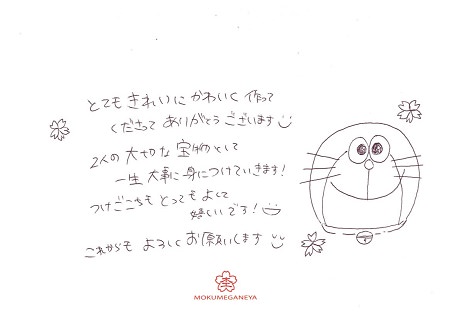 とても きれいに かわいく 作って
くださって ありがとう ございます
2人の 大切な 宝物として
一生 大事に 身につけていきます!
つけごこちも とっても よくて
嬉しいです!
これからも よろしく お願いします
MOKUMEGANEYA